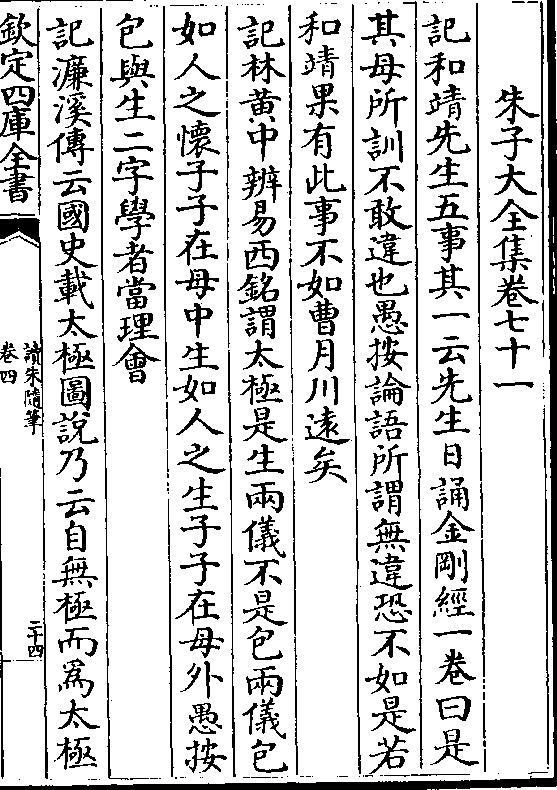 朱子大全集卷七十一
記和靖先生五事其一云先生日誦金剛經一卷曰是
其母所訓不敢違也愚按論語所謂無違恐不如是若
和靖果有此事不如曹月川遠矣
記林黄中辨易西銘謂太極是生兩儀不是包兩儀包
如人之懷子子在母中生如人之生子子在母外愚按
包與生二字學者當理會
記濂溪傳云國史載太極圖說乃云自無極而爲太極
欽定四庫全書
讀朱隨筆
卷四
二十四